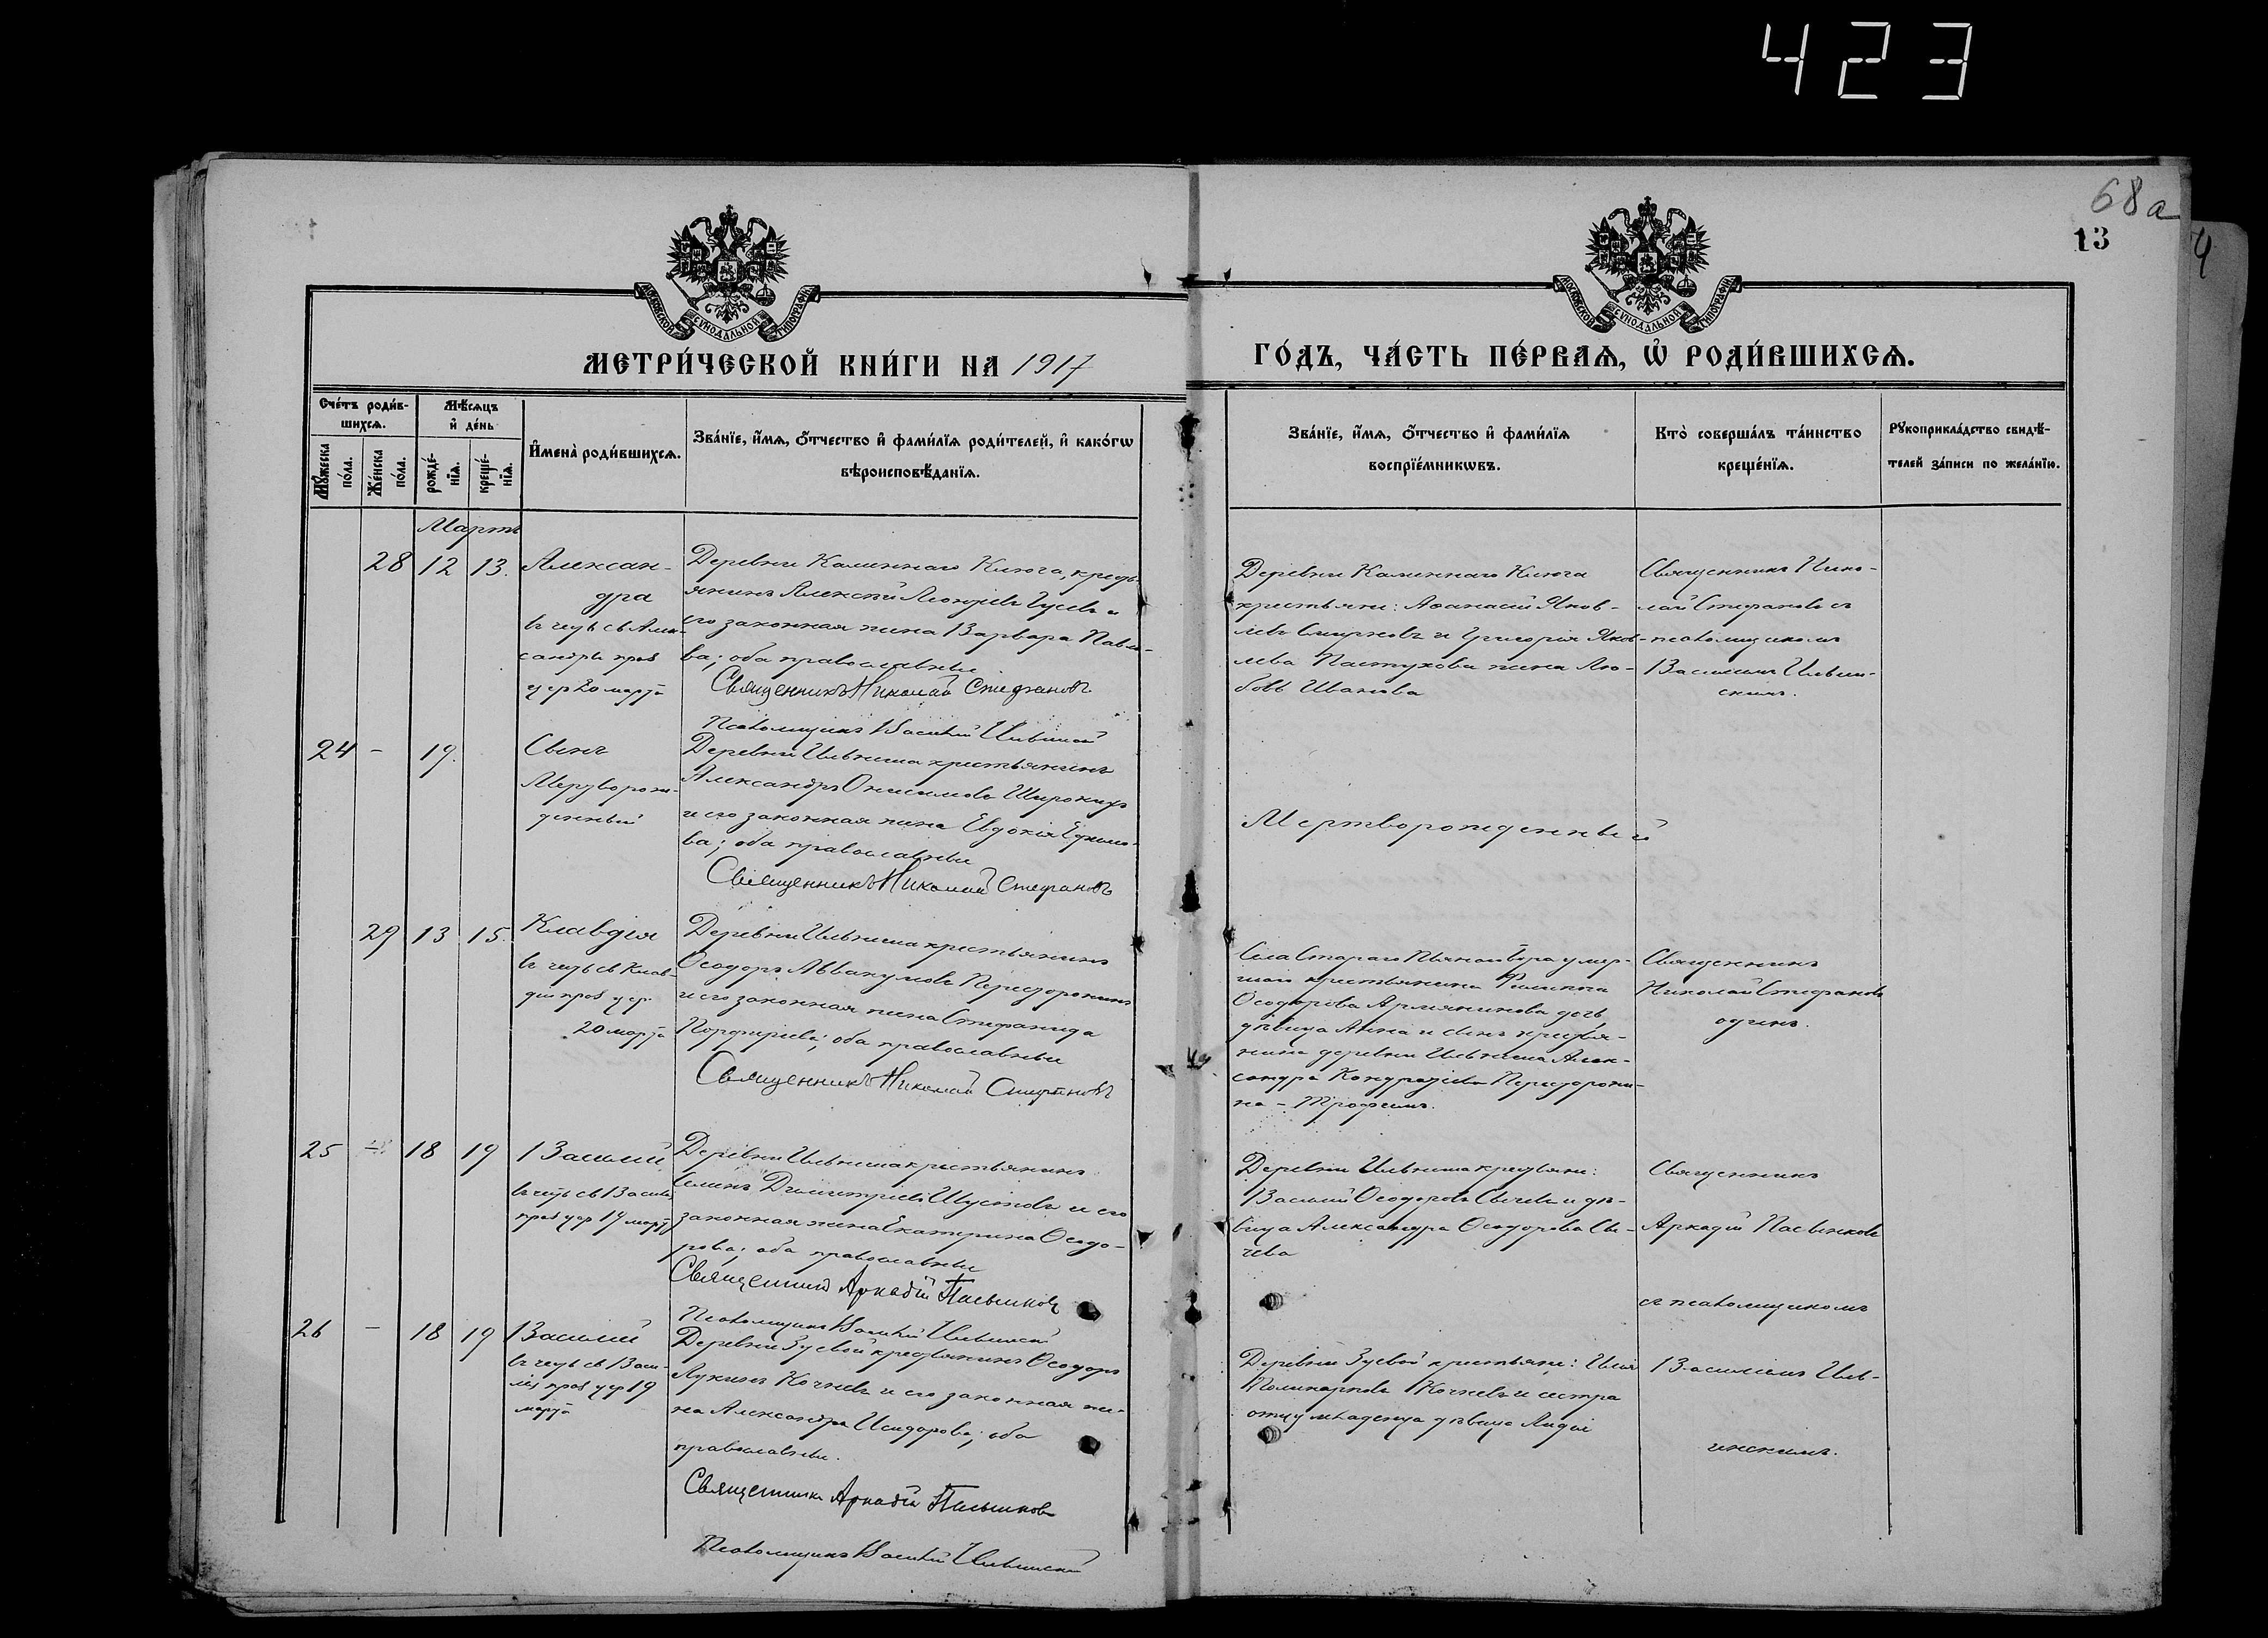 423
68а
13
МЕТРИ́ЧЕСКОЙ КНИ́ГИ НА 1917
ГО́ДЪ, ЧА́СТЬ ПЕ́РВАѦ, Ѽ РОДИ́ВШИХСѦ.
МОСКОВСКОЙ СѴНОДАЛЬНОЙ ТИПОГРАФІИ
МОСКОВСКОЙ СѴНОДАЛЬНОЙ ТИПОГРАФІИ
Сче́тъ роди́в-
шихсѧ.
Мꙋ́жеска по́ла.
Же́нска по́ла.
Мѣ́сѧцъ
и҆ де́нь
рожде́-
нїѧ.
креще́-
нїѧ.
И҆мена̀ роди́вшихсѧ.
Зва́нїе, и҆́мѧ, ѻ҆́тчество и҆ фами́лїѧ роди́телей, и҆ како́гѡ
вѣроисповѣ́данїѧ.
Зва́нїе, и҆́мѧ, ѻ҆́тчество и҆ фами́лїѧ
воспрїе́мникѡвъ.
Кто̀ соверша́лъ та́инство
креще́нїѧ.
Рꙋкоприкла́дство свидѣ́-
телей за́писи по жела́нїю.
Мартъ
28 12 13.
Алексан-
дра
въ честь св Алек-
сандры праз
цер 20 марта
Деревни Каменнаго Ключа, кресть-
янинъ Алексѣй Леонтіевъ Гусевъ и
его законная жена Варвара Павло-
ва; оба православные
Священникъ Николай Стефановъ
Псаломщикъ Василій Ильинскій
Деревни Каменнаго Ключа
крестьяне: Аѳанасій Яков-
левъ Смирновъ и Григорія Яков-
лева Пастухова жена Лю-
бовь Иванова
Священникъ Нико-
лай Стефановъ съ
псаломщикомъ
Василіемъ Ильин-
скимъ.
24 – 19.
Сынъ
Мертворож-
денный
Деревни Ильниша крестьянинъ
Александръ Онисимовъ Широкихъ
и его законная жена Евдокія Ефимо-
ва; оба православные
Священникъ Николай Стефановъ
Мертворожденный
29 13 15.
Клавдія
въ честь св Клав-
діи праз цер
20 марта
Деревни Ильниша крестьянинъ
Ѳеодоръ Аввакумовъ
и его законная жена Стефанида
Порфирьева; оба православные
Священникъ Николай Стефановъ
Села Стараго умер-
шаго крестьянина Филиппа
Ѳеодорова Армянинова дочь
дѣвица Анна и сынъ крестья-
нина деревни Ильниша Алек-
сандра Кондратіева
на – Трофимъ.
Священникъ
Николай Стефановъ
одинъ.
25 – 18 19
Василій
въ честь св Василія
праз цер 19 марта
Деревни Ильниша крестьянинъ
Семенъ Димитріевъ Шустовъ и его
законная жена Екатерина Ѳеодо-
рова; оба православные
Священникъ Аркадій Пасынковъ
Псаломщикъ Василій Ильинскій
Деревни Ильниша крестьяне:
Василій Ѳеодоровъ Сычевъ и дѣ-
вица Александра Ѳеодорова Сы-
чева
Священникъ
Аркадій Пасынковъ
съ псаломщикомъ
26 – 18 19
Василій
въ честь св Васи-
лія праз цер 19
марта
Деревни Зуевой крестьянинъ Ѳеодоръ
Лукинъ Кочневъ и его законная же-
на Александра Исидорова; оба
православные.
Священникъ Аркадій Пасынковъ
Псаломщикъ Василій Ильинскій
Деревни Зуевой крестьяне: Илья
Поликарповъ Кочневъ и сестра
отцу младенца дѣвица Лидія
Василіемъ Иль-
инскимъ.